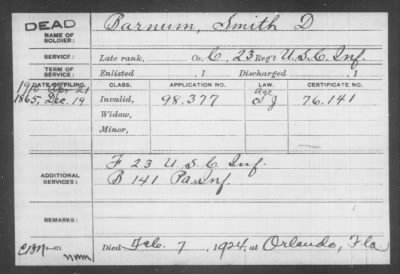 DEAD
NAME OF SOLDIER:
Barnum, Smith D
SERVICE:
Late rank, Co. C, 23 Reg't U.S.C. Inf.
TERM OF SERVICE:
Enlisted , 1 Discharged , 1
DATE OF FILING. CLASS. APPLICATION NO. LAW. CERTIFICATE NO.
Apr 21 Age
1865, Dec. 19 Invalid, 98.377 76.141
Widow,
Minor,
ADDITIONAL SERVICES:
F 23 U S C Inf.
B 141 Pa Inf.
REMARKS:
Died Feb. 7, 1924, at Orlando, Fla